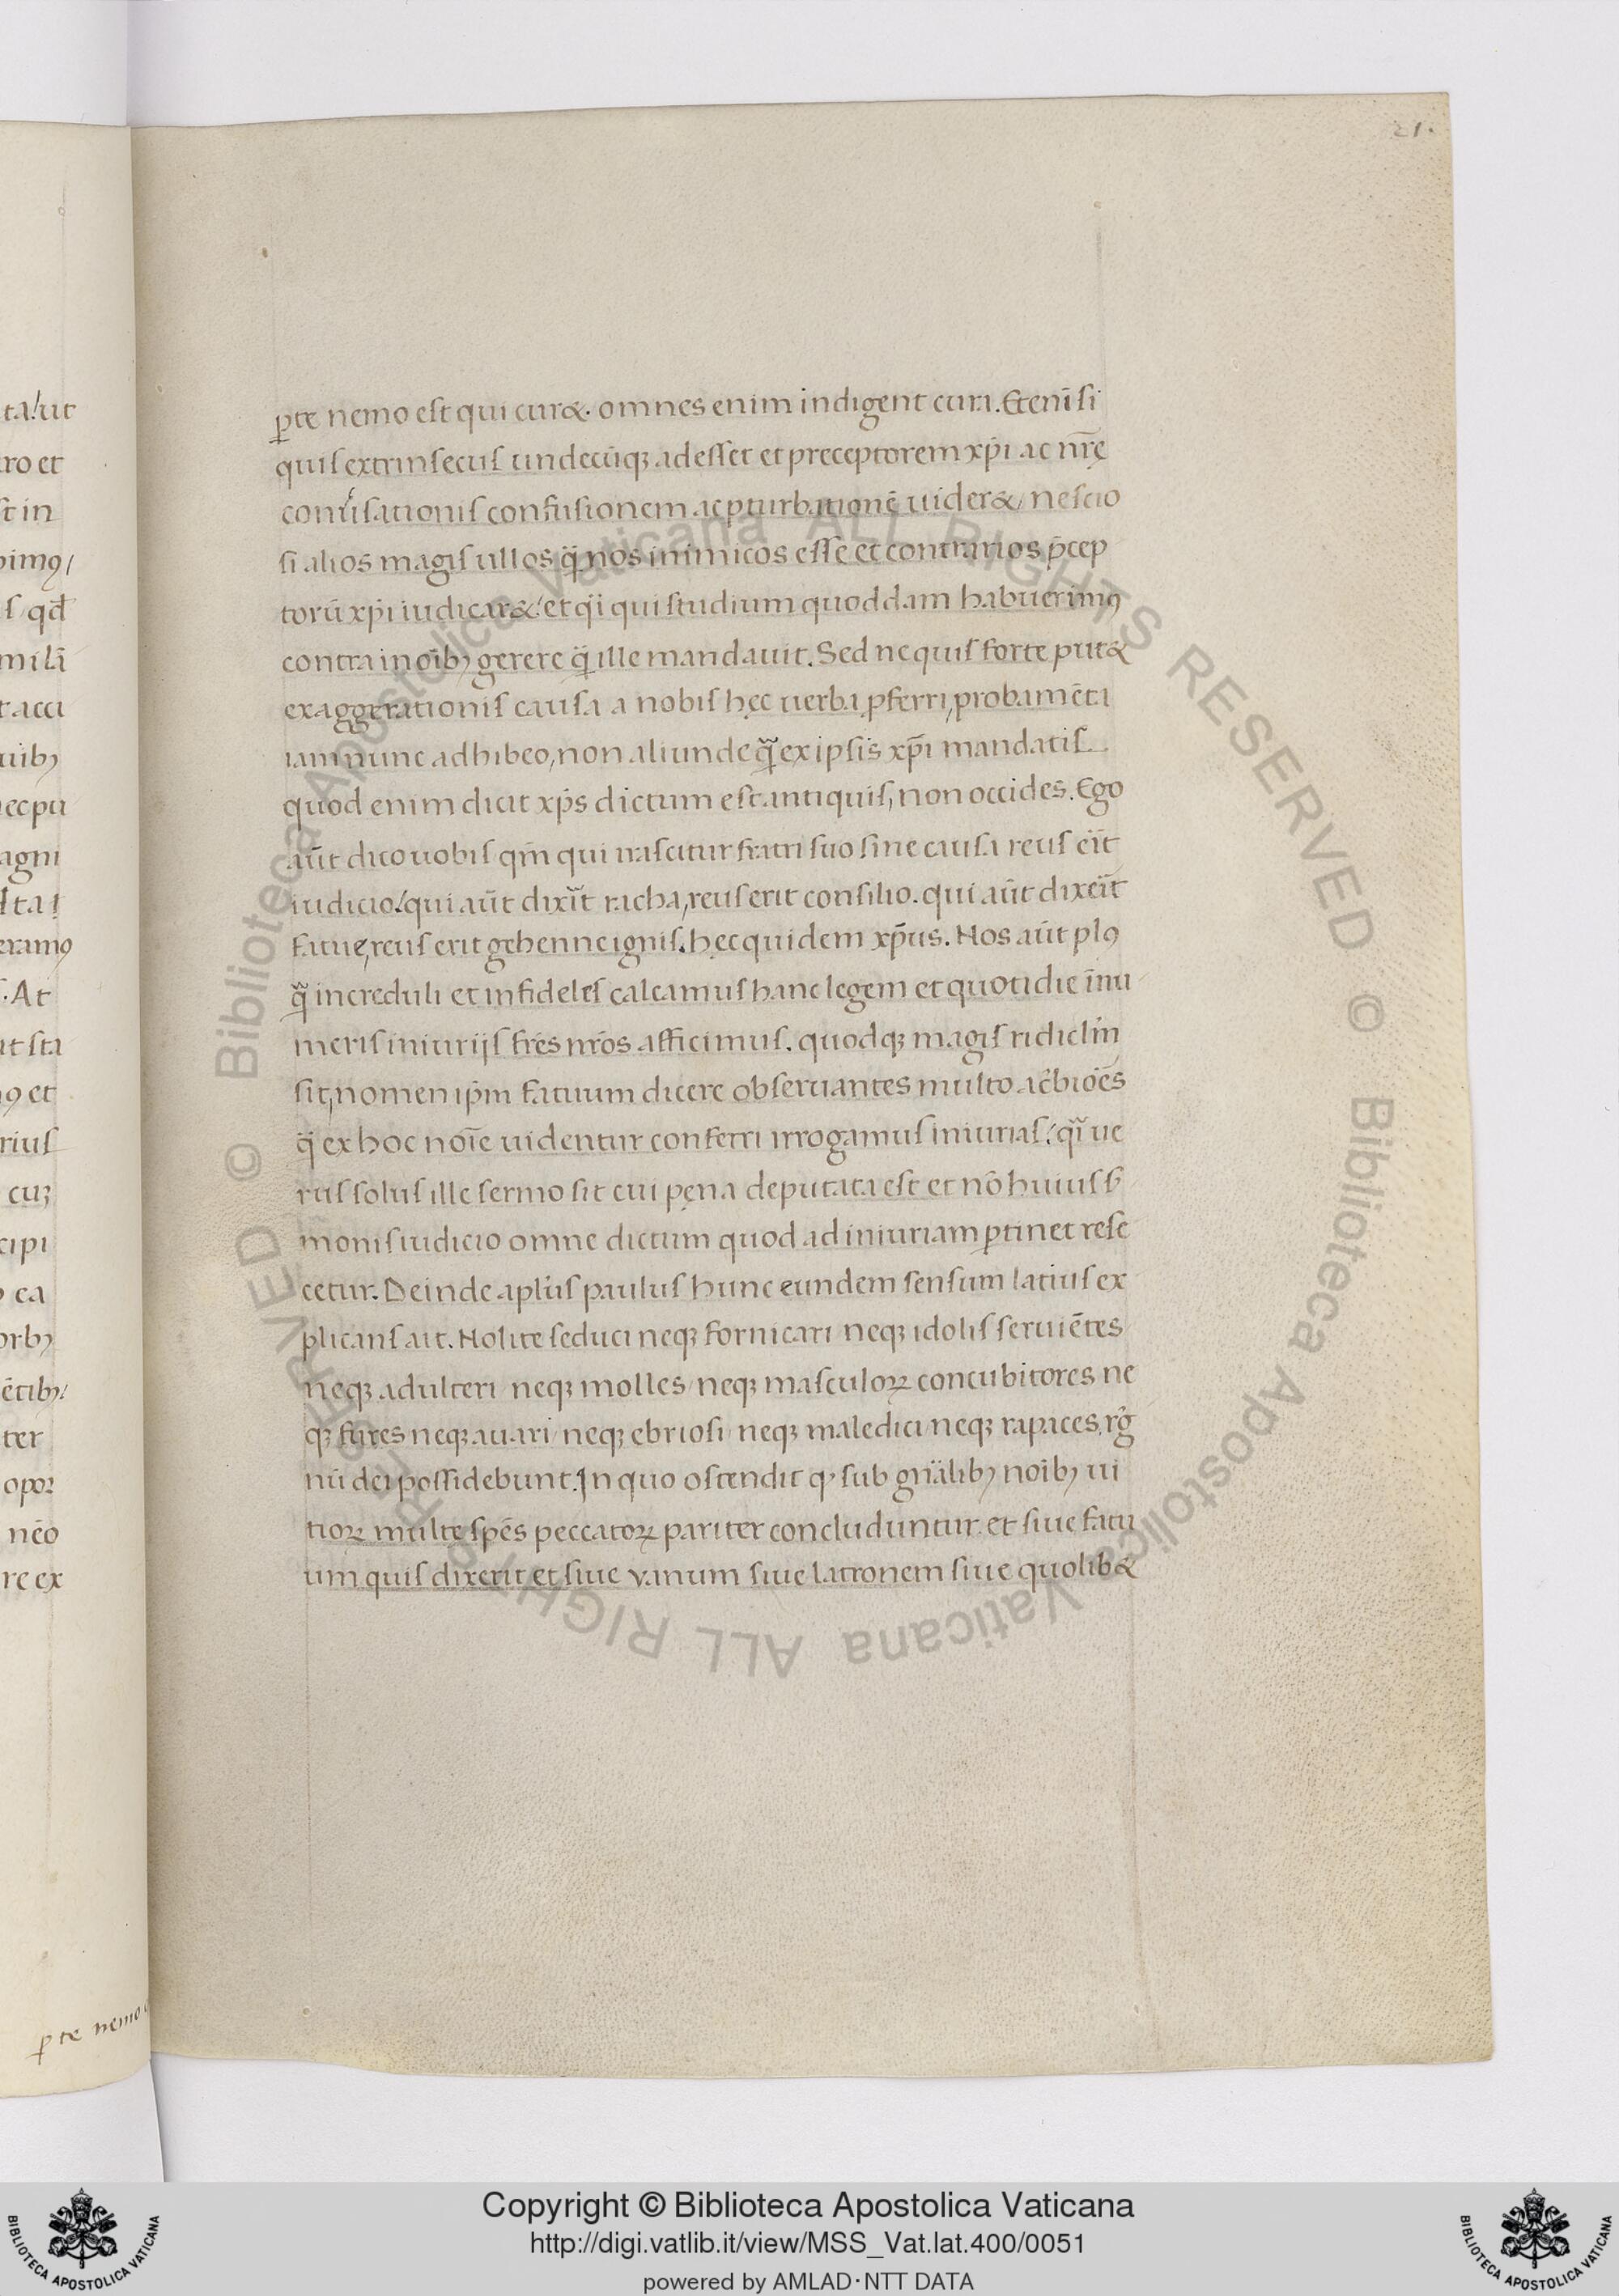 21.
ꝑte nemo est qui cur&. omnes enim indigent cura. Etenī si
quis extrinsecus undecūqꝫ adesset et preceptorem xp̄i ac nr̄ę
conuͥsationis confusionem ac ꝑturbationē uider&, nescio
si alios magis ullos q̄ nos inimicos esse et contrarios p̄cep
torū xp̄i iudicar&: et q̈i qui studium quoddam habuerimꝰ
contra in oībꝫ gerere q̈ ille mandauit. Sed ne quis forte put&
exaggerationis causa a nobis hęc uerba ꝓferri, probamēta
iam nunc adhibeo, non aliunde q̈ ex ipsis xp̄i mandatis
quod enim dicit xp̄s dictum est antiquis, non occides. Ego
aūt dico uobis qm̄ qui irascitur fratri suo sine causa reus eīt
iudicio: qui aūt dixīt racha, reus erit consilio. qui aūt dixeīt
fatue, reus erit gehenne ignis. hęc quidem xp̄us. Nos aūt plꝰ
q̈ increduli et infideles calcamus hanc legem et quotidie īnu
meris iniurijs fr̄es nr̄os afficimus. quodqꝫ magis ridiclm̄
sit, nomen ip̄m fatuum dicere obseruantes multo ac̄biōes
q̈ ex hoc noīe uidentur conferri irrogamus iniurias: q̈i ue
rus solus ille sermo sit cui pęna deputata est et nō huius s̄
monis iudicio omne dictum quod ad iniuriam ꝑtinet rese
cetur. Deinde apl̄us paulus hunc eundem sensum latius ex
plicans ait. Nolite seduci neqꝫ fornicari neqꝫ idolis seruiētes
neqꝫ adulteri neqꝫ molles neqꝫ masculoꝝ concubitores ne
qꝫ fures neqꝫ auari neqꝫ ebriosi neqꝫ maledici neqꝫ rapaces, rḡ
nū dei possidebunt. In quo ostendit ꝙ sub gn̄alibꝫ noībꝫ ui
tioꝝ multe spēs peccatoꝝ pariter concluduntur. et siue fatu
um quis dixerit et siue vanum siue latronem siue quolib&
ꝑte nemo
Copyright © Biblioteca Apostolica Vaticana
http://digi.vatlib.it/view/MSS_Vat.lat.400/0051
powered by AMLAD·NTT DATA
BIBLIOTECA APOSTOLICA VATICANA
BIBLIOTECA APOSTOLICA VATICANA
© Biblioteca Apostolica Vaticana ALL RIGHTS RESERVED
© Biblioteca Apostolica Vaticana ALL RIGHTS RESERVED